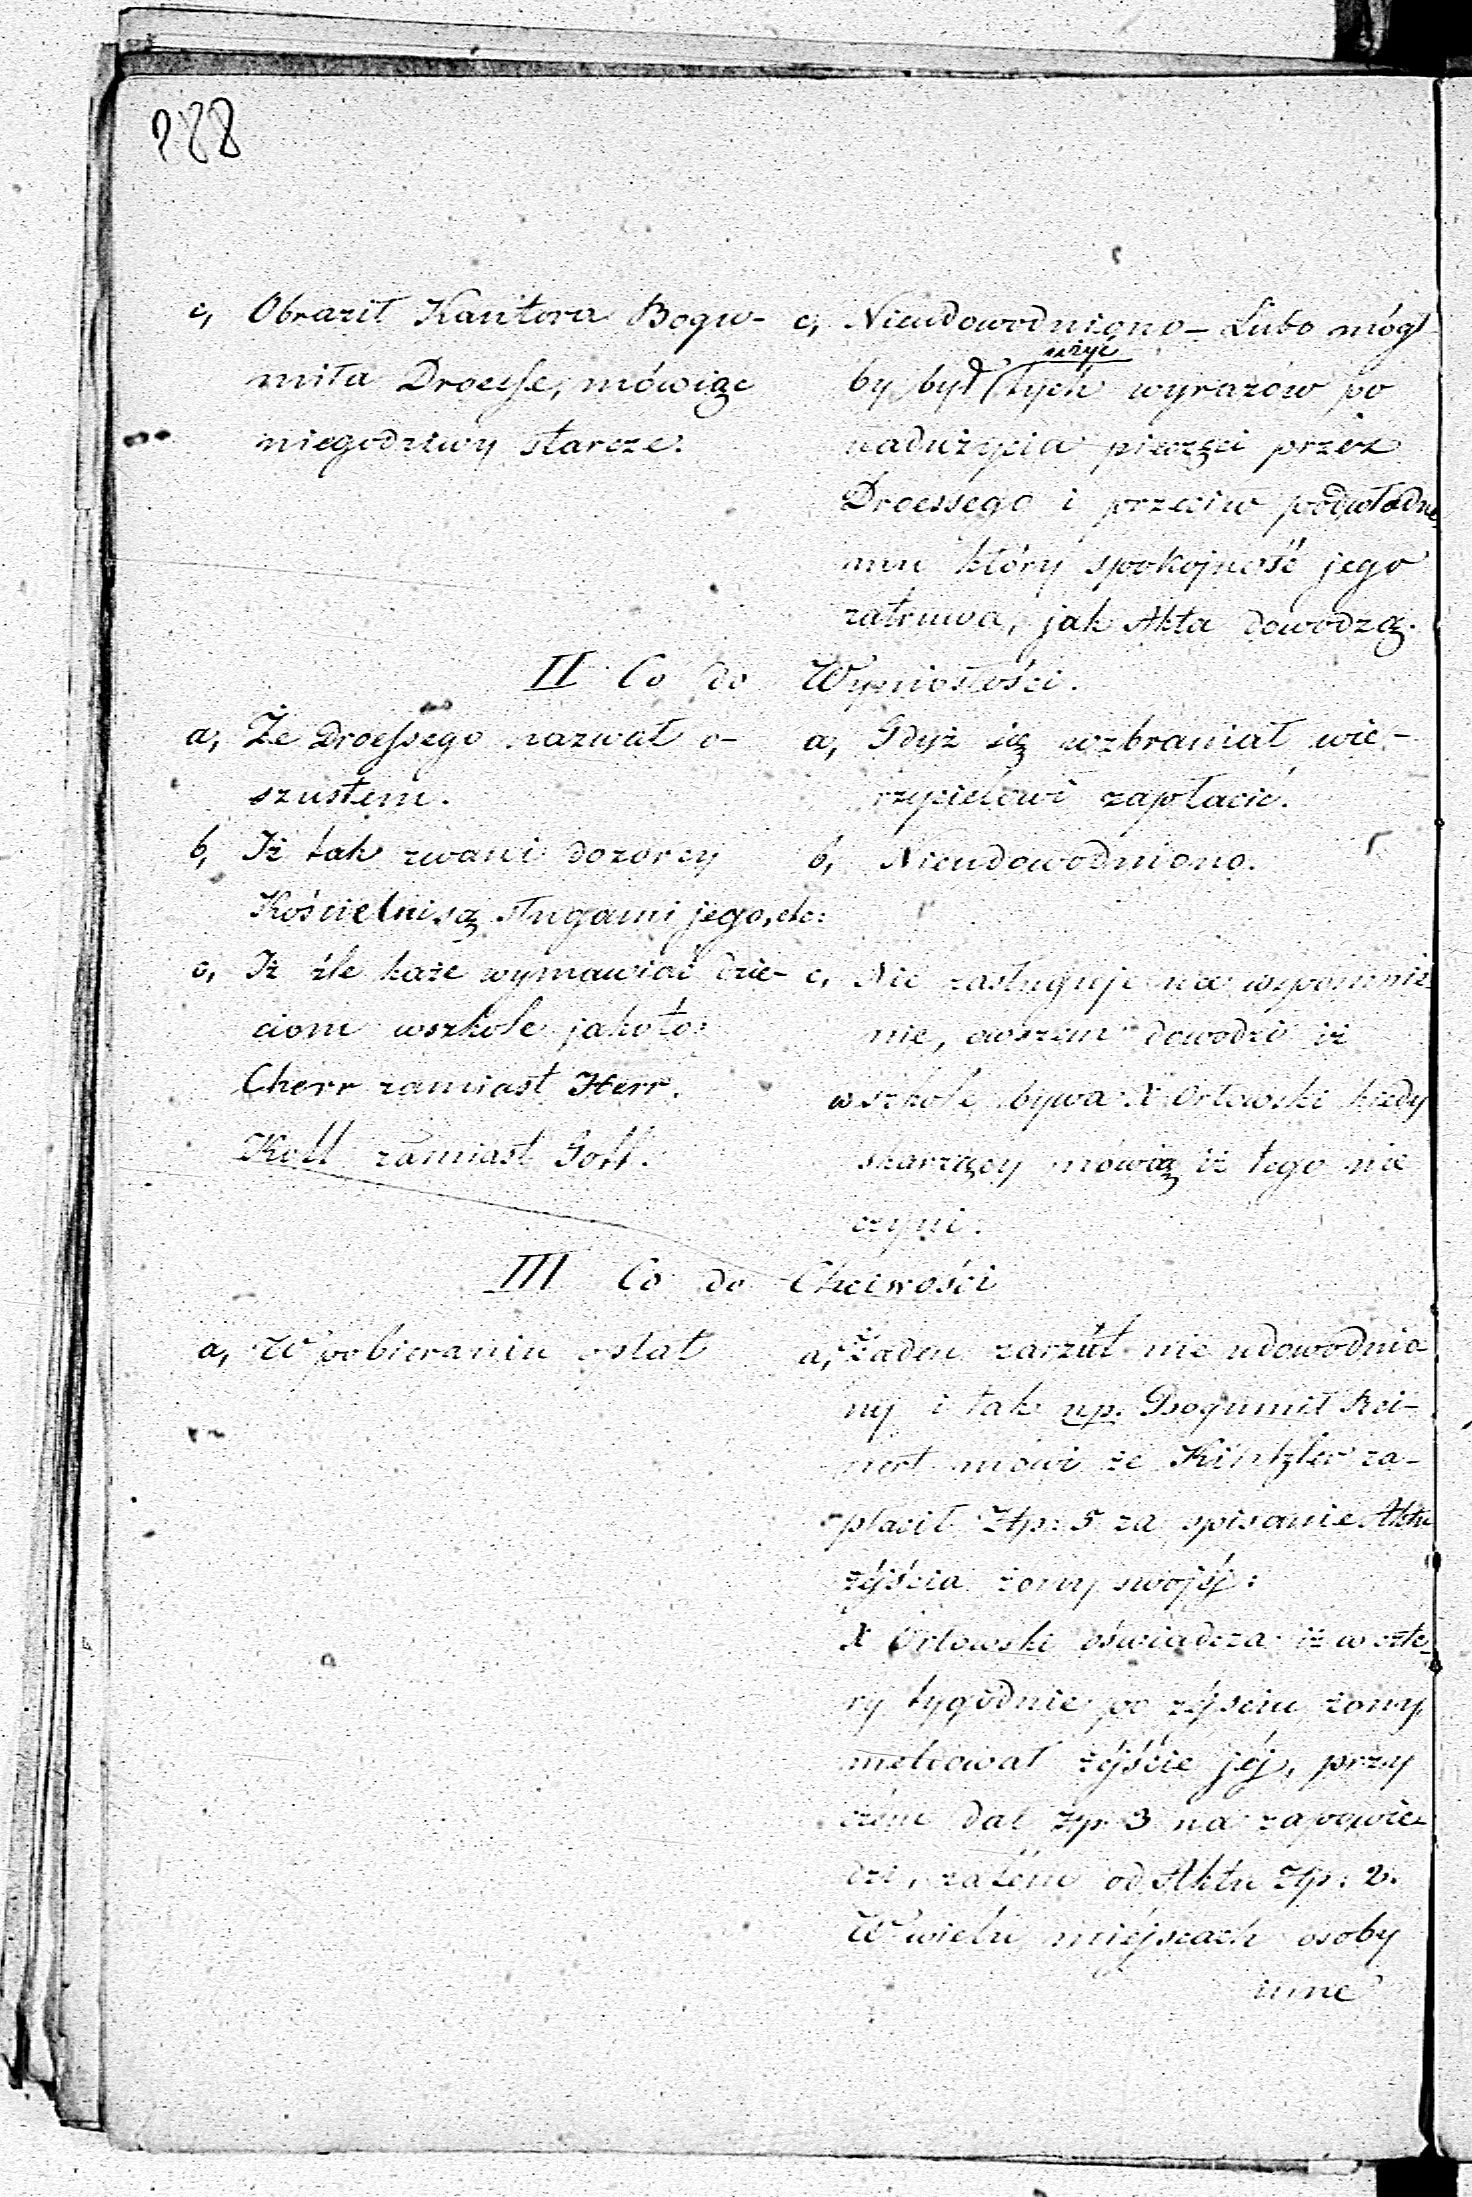 188
c, Obraził Kantora Bogu-
miła Droesse, mówiąc
niegodziwy starcze.
c, Nieudowodniono – Lubo mógł
użyć
by był tych wyrazów po
nadużycia pieczęci przez
Droessego i przeciw podwładne
mu który spokojność jego
zatruwa, jak Akta dowodzą.
II Co do Wyniosłości.
a, Że Droessego nazwał o-
szustem.
a, Gdyż się wzbraniał wie-
rzycielowi zapłacić.
b, Iż tak zwani dozorcy
Kościelni są sługami jego, etc:
b, Nieudowodniono.
c, Iż źle każe wymawiać dzie-
ciom w szkole jakoto:
Cherr zamiast Herr.
Kott zamiast Gott.
c, Nie zasługuje na wspomnie
nie, owszem dowodzi iż
w szkole bywa X Orłowski kiedy
skarzący mówią iż tego nie
czyni.
III Co do Chciwości
a, W pobieraniu opłat
a, Żaden zarzut nie udowodnio
ny i tak np. Bogumił Rei-
nert mówi że Kintzler za-
płacił Złp: 5 za spisanie Aktu
zéjścia żony swojéj:
X Orłowski oświadcza iż w czte-
ry tygodnie po zéjściu żony
meldował zéjście jéj, przy
czém dał złp 3 na zapowie-
dzi, zatém od Aktu Złp: 2.
W wielu miéjscach osoby
inne